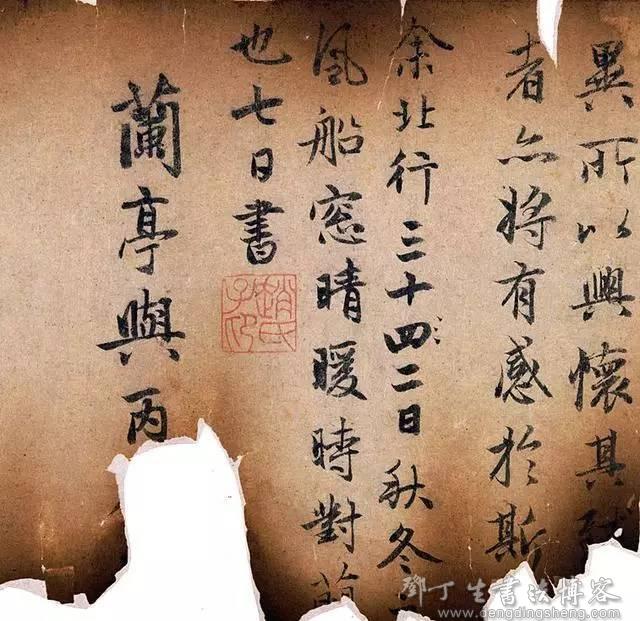 異所以興懷其
者亦将有感於斯
余北行三十四二日秋冬
風船窓晴暖時對
也七日書
趙氏子昂
蘭亭與丙
鄧丁生書法博客
www.dengdingsheng.com